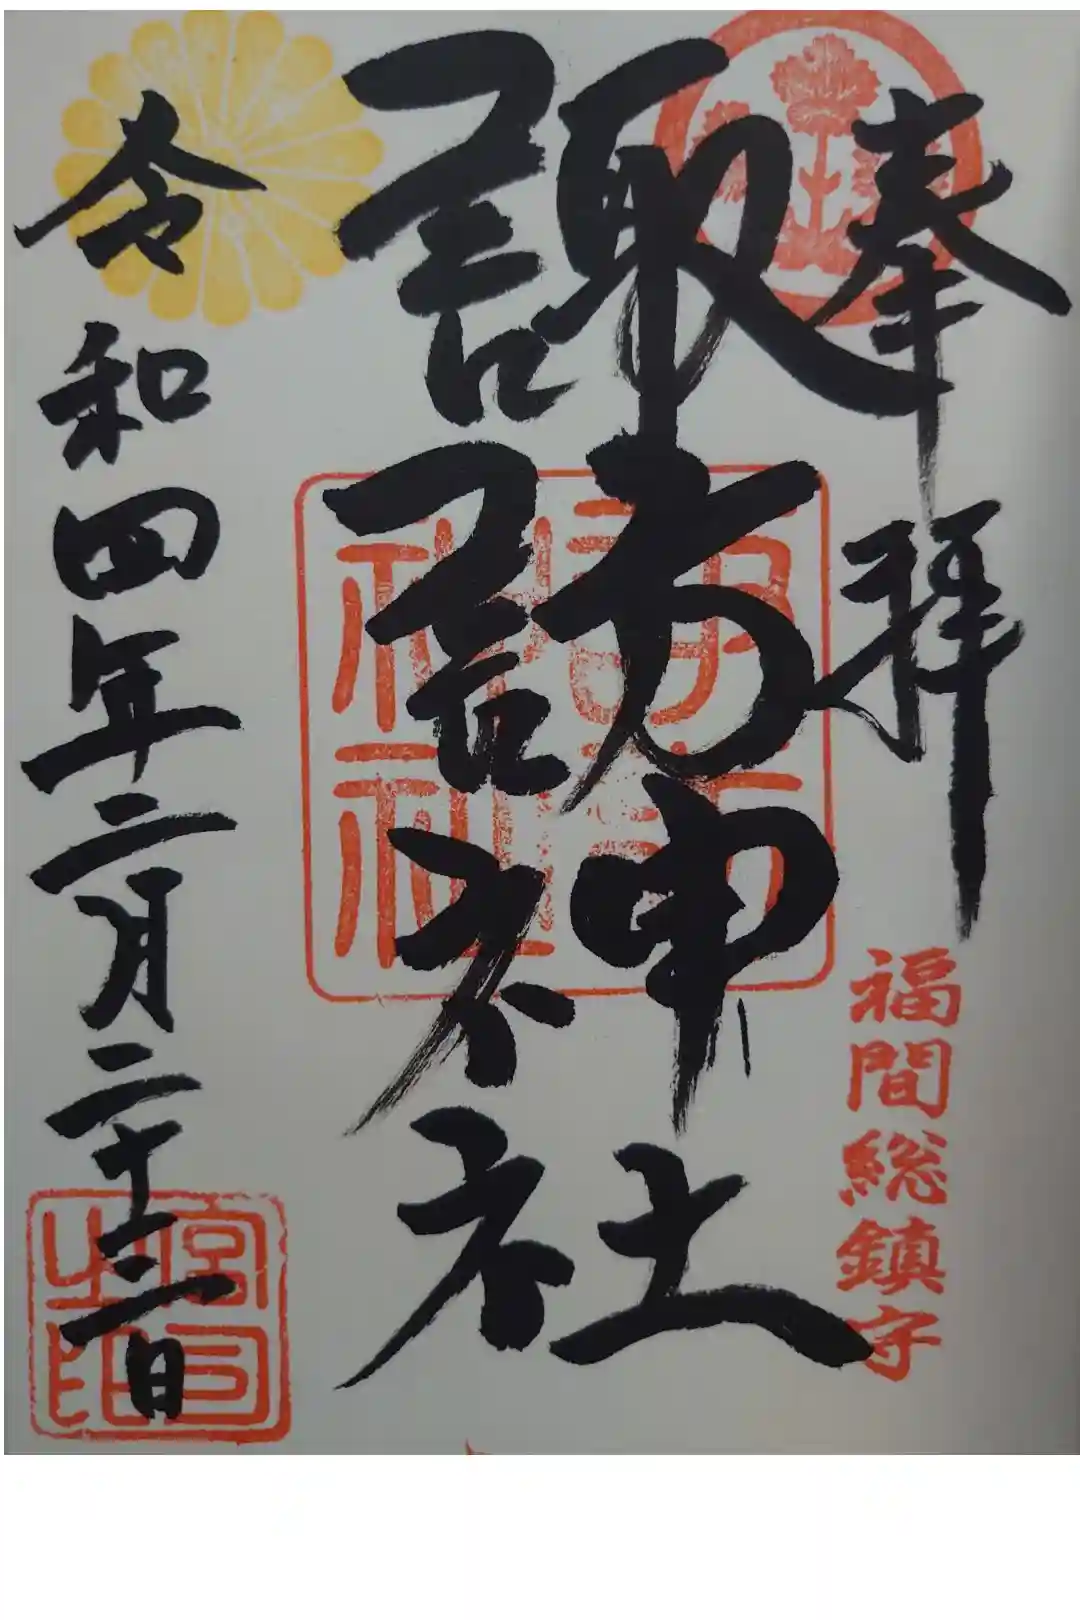 奉拝
福間総鎮守
諏訪神社
諏訪神社
令和四年二月二十三日
宮司之印